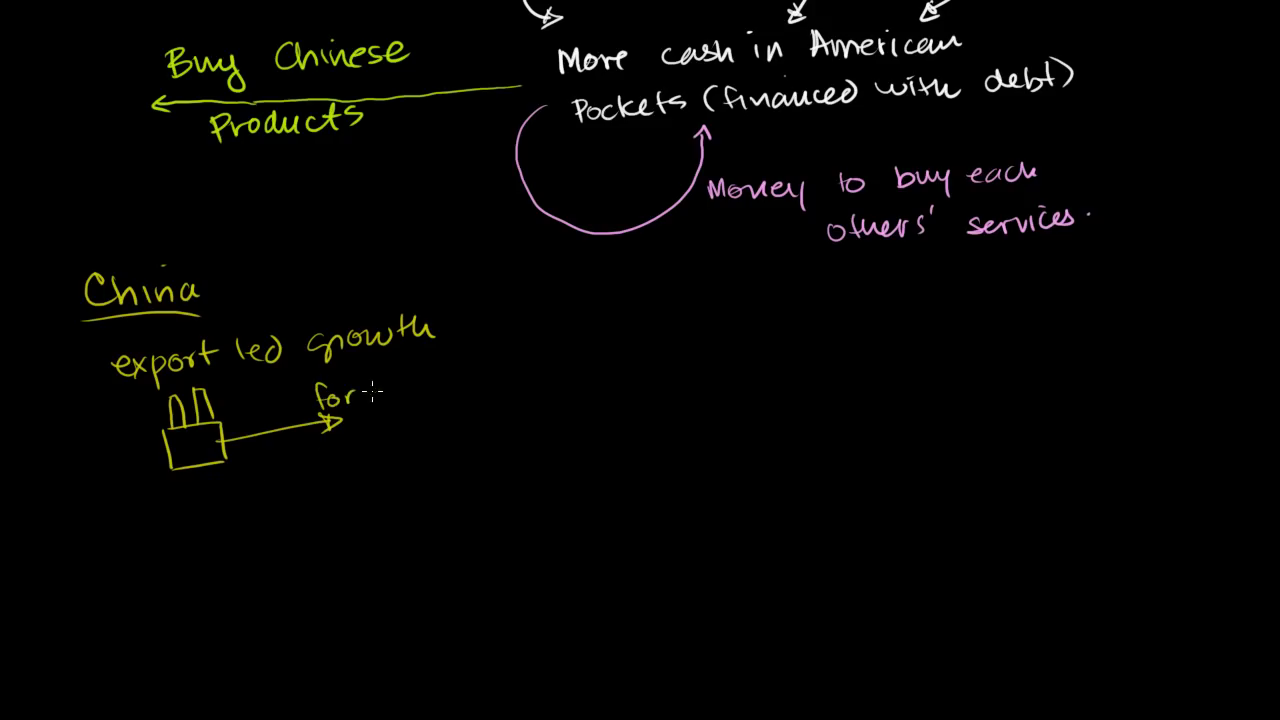 Buy Chinese
Products
More cash in American
Pockets (financed with debt)
Money to buy each
others' services.
China
export led growth
for